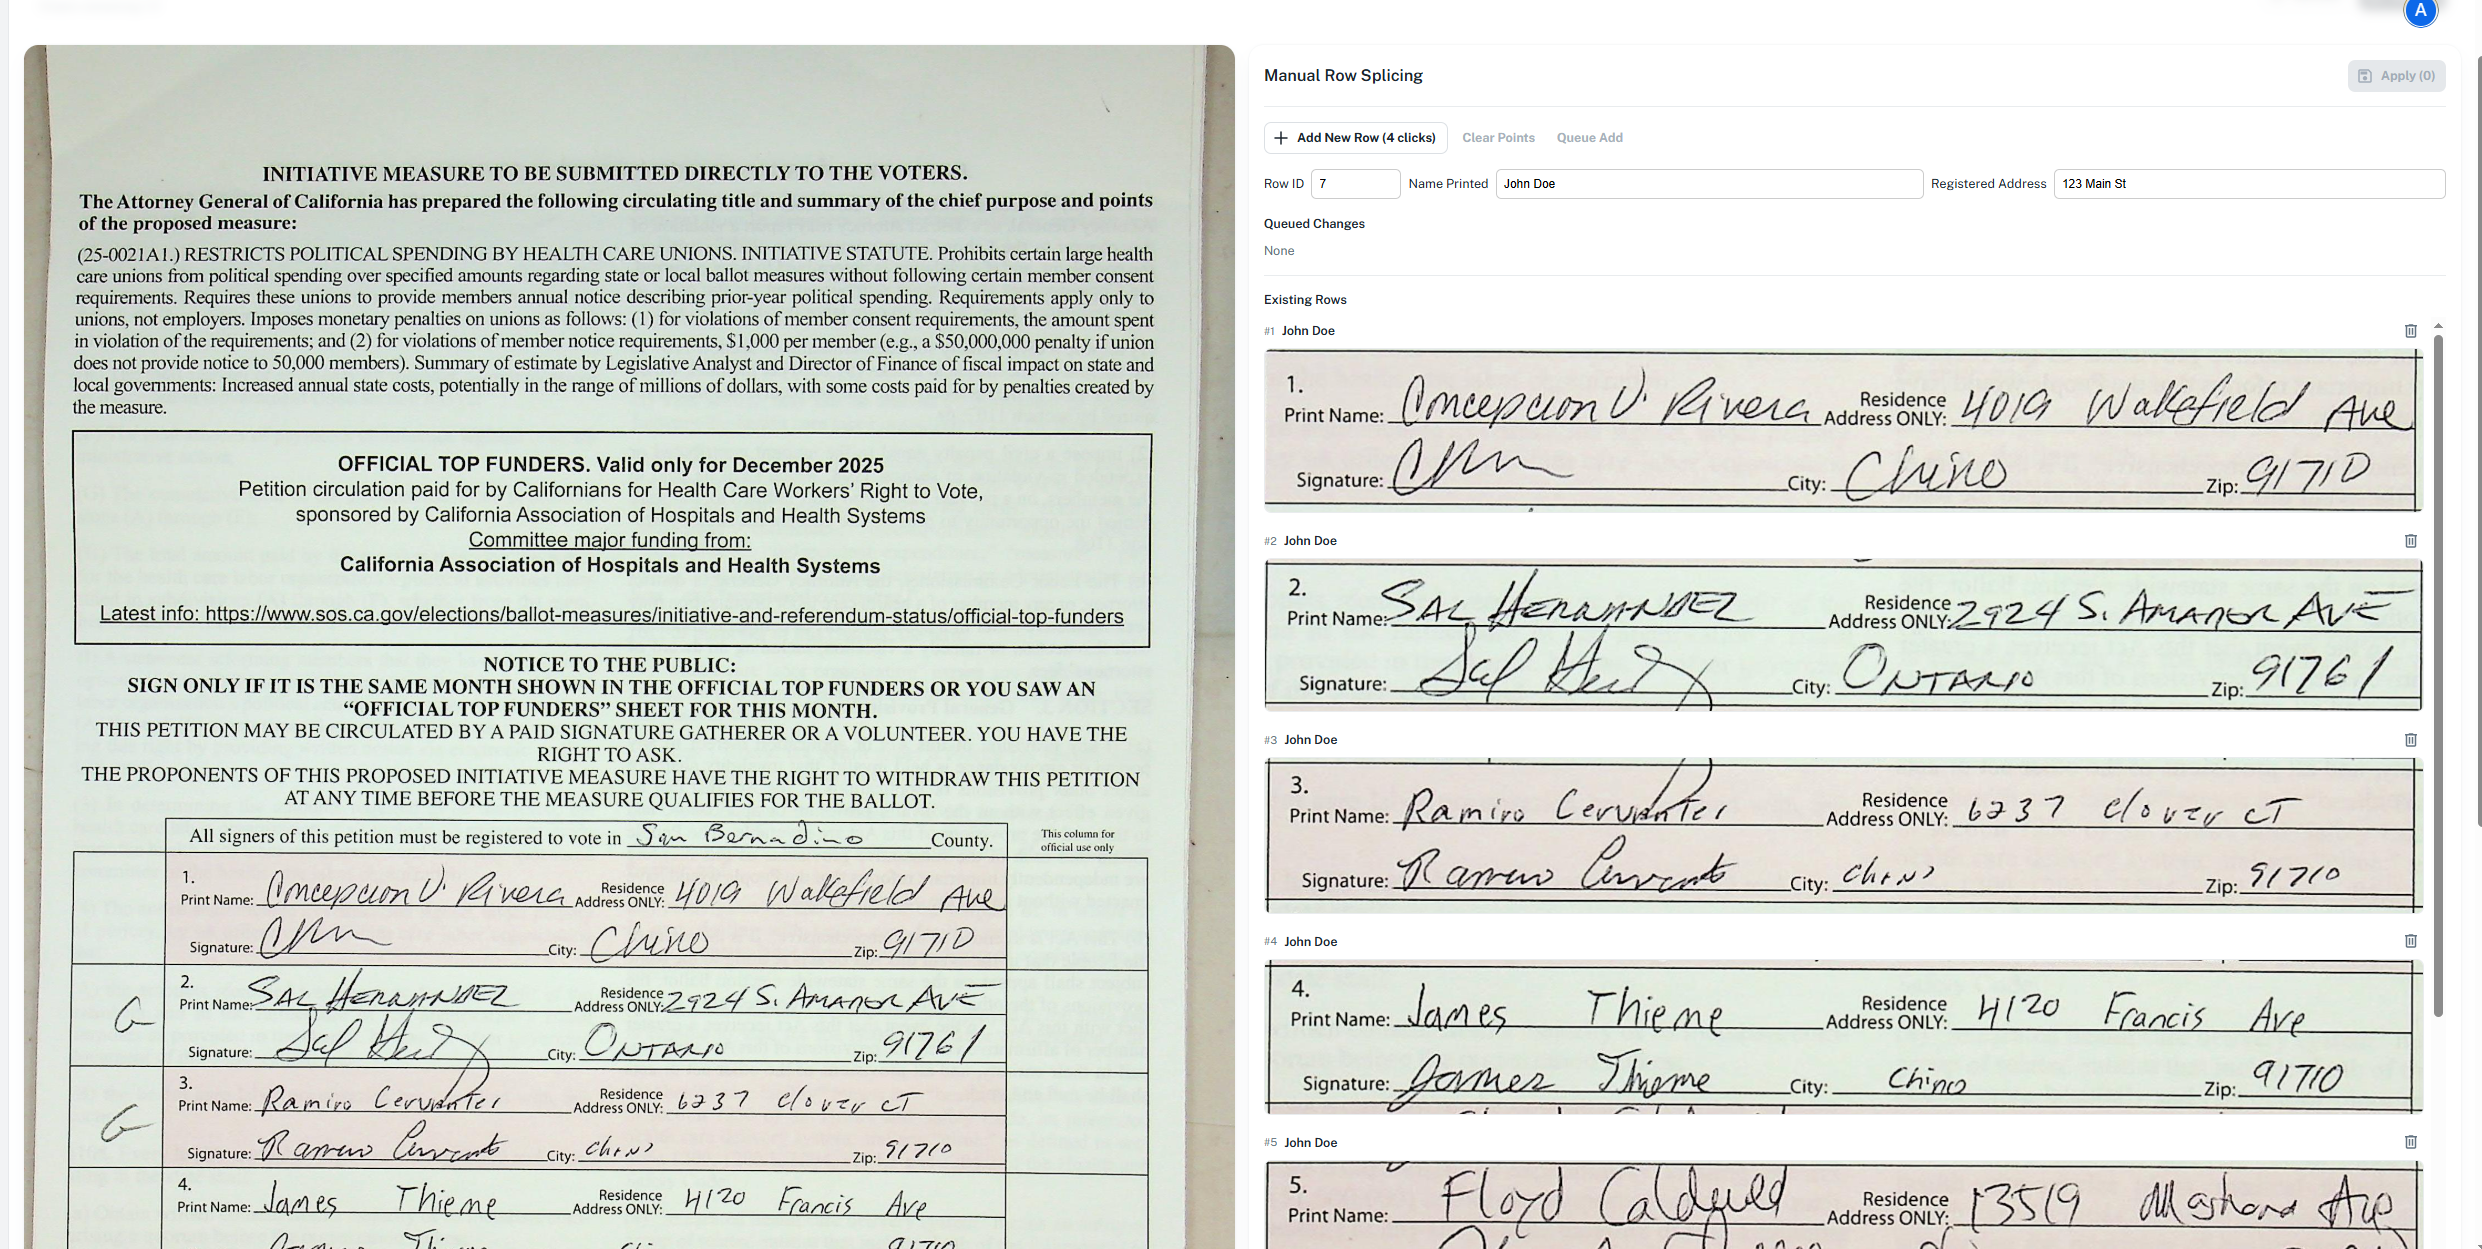 A
INITIATIVE MEASURE TO BE SUBMITTED DIRECTLY TO THE VOTERS.
The Attorney General of California has prepared the following circulating title and summary of the chief purpose and points
of the proposed measure:
(25-0021A1.) RESTRICTS POLITICAL SPENDING BY HEALTH CARE UNIONS. INITIATIVE STATUTE. Prohibits certain large health
care unions from political spending over specified amounts regarding state or local ballot measures without following certain member consent
requirements. Requires these unions to provide members annual notice describing prior-year political spending. Requirements apply only to
unions, not employers. Imposes monetary penalties on unions as follows: (1) for violations of member consent requirements, the amount spent
in violation of the requirements; and (2) for violations of member notice requirements, $1,000 per member (e.g., a $50,000,000 penalty if union
does not provide notice to 50,000 members). Summary of estimate by Legislative Analyst and Director of Finance of fiscal impact on state and
local governments: Increased annual state costs, potentially in the range of millions of dollars, with some costs paid for by penalties created by
the measure.
OFFICIAL TOP FUNDERS. Valid only for December 2025
Petition circulation paid for by Californians for Health Care Workers' Right to Vote,
sponsored by California Association of Hospitals and Health Systems
Committee major funding from:
California Association of Hospitals and Health Systems
Latest info: https://www.sos.ca.gov/elections/ballot-measures/initiative-and-referendum-status/official-top-funders
NOTICE TO THE PUBLIC:
SIGN ONLY IF IT IS THE SAME MONTH SHOWN IN THE OFFICIAL TOP FUNDERS OR YOU SAW AN
"OFFICIAL TOP FUNDERS" SHEET FOR THIS MONTH.
THIS PETITION MAY BE CIRCULATED BY A PAID SIGNATURE GATHERER OR A VOLUNTEER. YOU HAVE THE
RIGHT TO ASK.
THE PROPONENTS OF THIS PROPOSED INITIATIVE MEASURE HAVE THE RIGHT TO WITHDRAW THIS PETITION
AT ANY TIME BEFORE THE MEASURE QUALIFIES FOR THE BALLOT.
All signers of this petition must be registered to vote in San Bernadino County.
This column for
official use only
1.
Print Name: Concepcion V. Rivera Residence Address ONLY: 4019 Wakefield Ave
Signature: City: Chino Zip: 91710
2.
Print Name: SAL HERNANDEZ Residence Address ONLY: 2924 S. AMADOR AVE
Signature: City: ONTARIO Zip: 91761
3.
Print Name: Ramiro Cervantes Residence Address ONLY: 6237 clover CT
Signature: Ramiro Cervantes City: chino Zip: 91710
4.
Print Name: James Thieme Residence Address ONLY: 4120 Francis Ave
Manual Row Splicing
Apply (0)
Add New Row (4 clicks) Clear Points Queue Add
Row ID 7 Name Printed John Doe Registered Address 123 Main St
Queued Changes
None
Existing Rows
#1 John Doe
1.
Print Name: Concepcion V. Rivera Residence Address ONLY: 4019 Wakefield Ave
Signature: City: Chino Zip: 91710
#2 John Doe
2.
Print Name: SAL HERNANDEZ Residence Address ONLY: 2924 S. AMADOR AVE
Signature: City: ONTARIO Zip: 91761
#3 John Doe
3.
Print Name: Ramiro Cervantes Residence Address ONLY: 6237 clover CT
Signature: Ramiro Cervantes City: chino Zip: 91710
#4 John Doe
4.
Print Name: James Thieme Residence Address ONLY: 4120 Francis Ave
Signature: James Thieme City: Chino Zip: 91710
#5 John Doe
5.
Print Name: Floyd Caldwell Residence Address ONLY: 13519